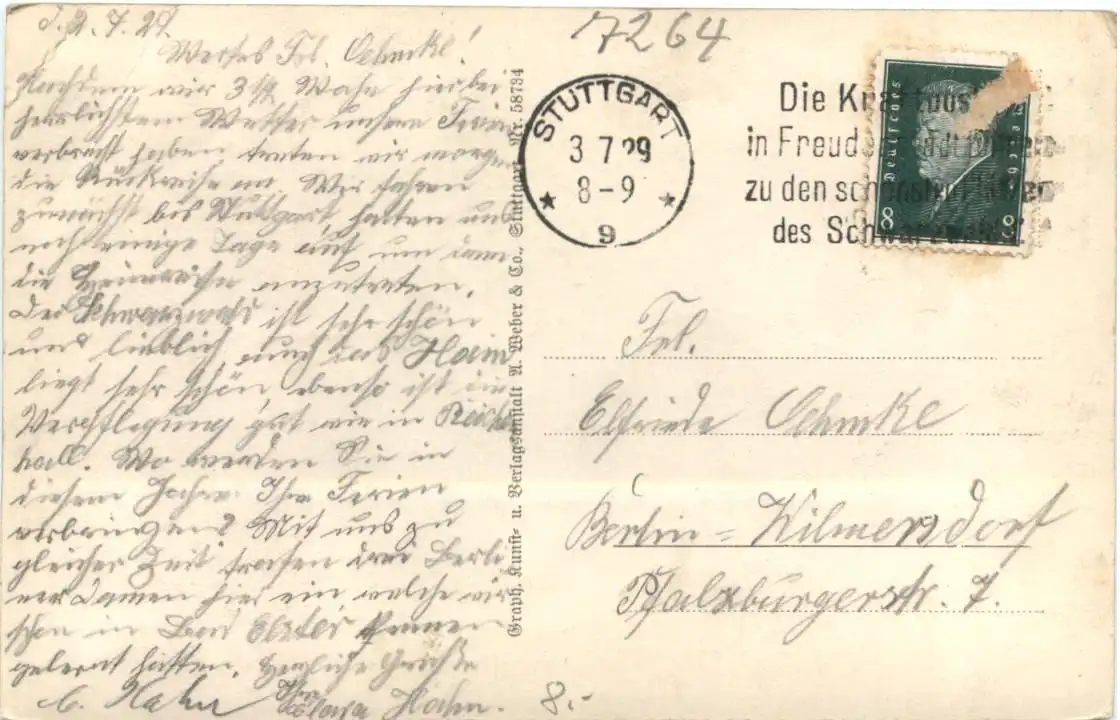 2.7.29.
Wertes Frl. Oehmke!
Nachdem wir 3 1/2 Woche hierbei
herrlichstem Wetter unsere Ferien
verbracht haben, treten wir morgen
die Rückreise an. Wir fahren
zunächst bis Stuttgart, halten uns
noch einige Tage auf um dann
die Heimreise anzutreten.
Der Schwarzwald ist sehr schön
und lieblich, auch das Heim
liegt sehr schön, ebenso ist die
Verpflegung gut wie in Reichen
hall. Wo werden Sie in
diesem Jahre Ihre Ferien
verbringen? Mit uns zu
gleicher Zeit trafen drei Berli
ner Damen hier ein, welche wir
schon in Bad Elster kennen
gelernt hatten. Herzliche Grüße
Hahn Hahn.
7264
STUTTGART
3 7 29
8-9
9
Die Kraftpost
in Freudenstadt
zu den schönsten
des Schwarzwalds
Deutsches Reich
8 8
Graph. Kunst- u. Verlagsanstalt A. Weber & Co., Stuttgart Nr. 58734
Frl.
Elfriede Oehmke
Berlin=Wilmersdorf
Pfalzburgerstr. 7.
8.-